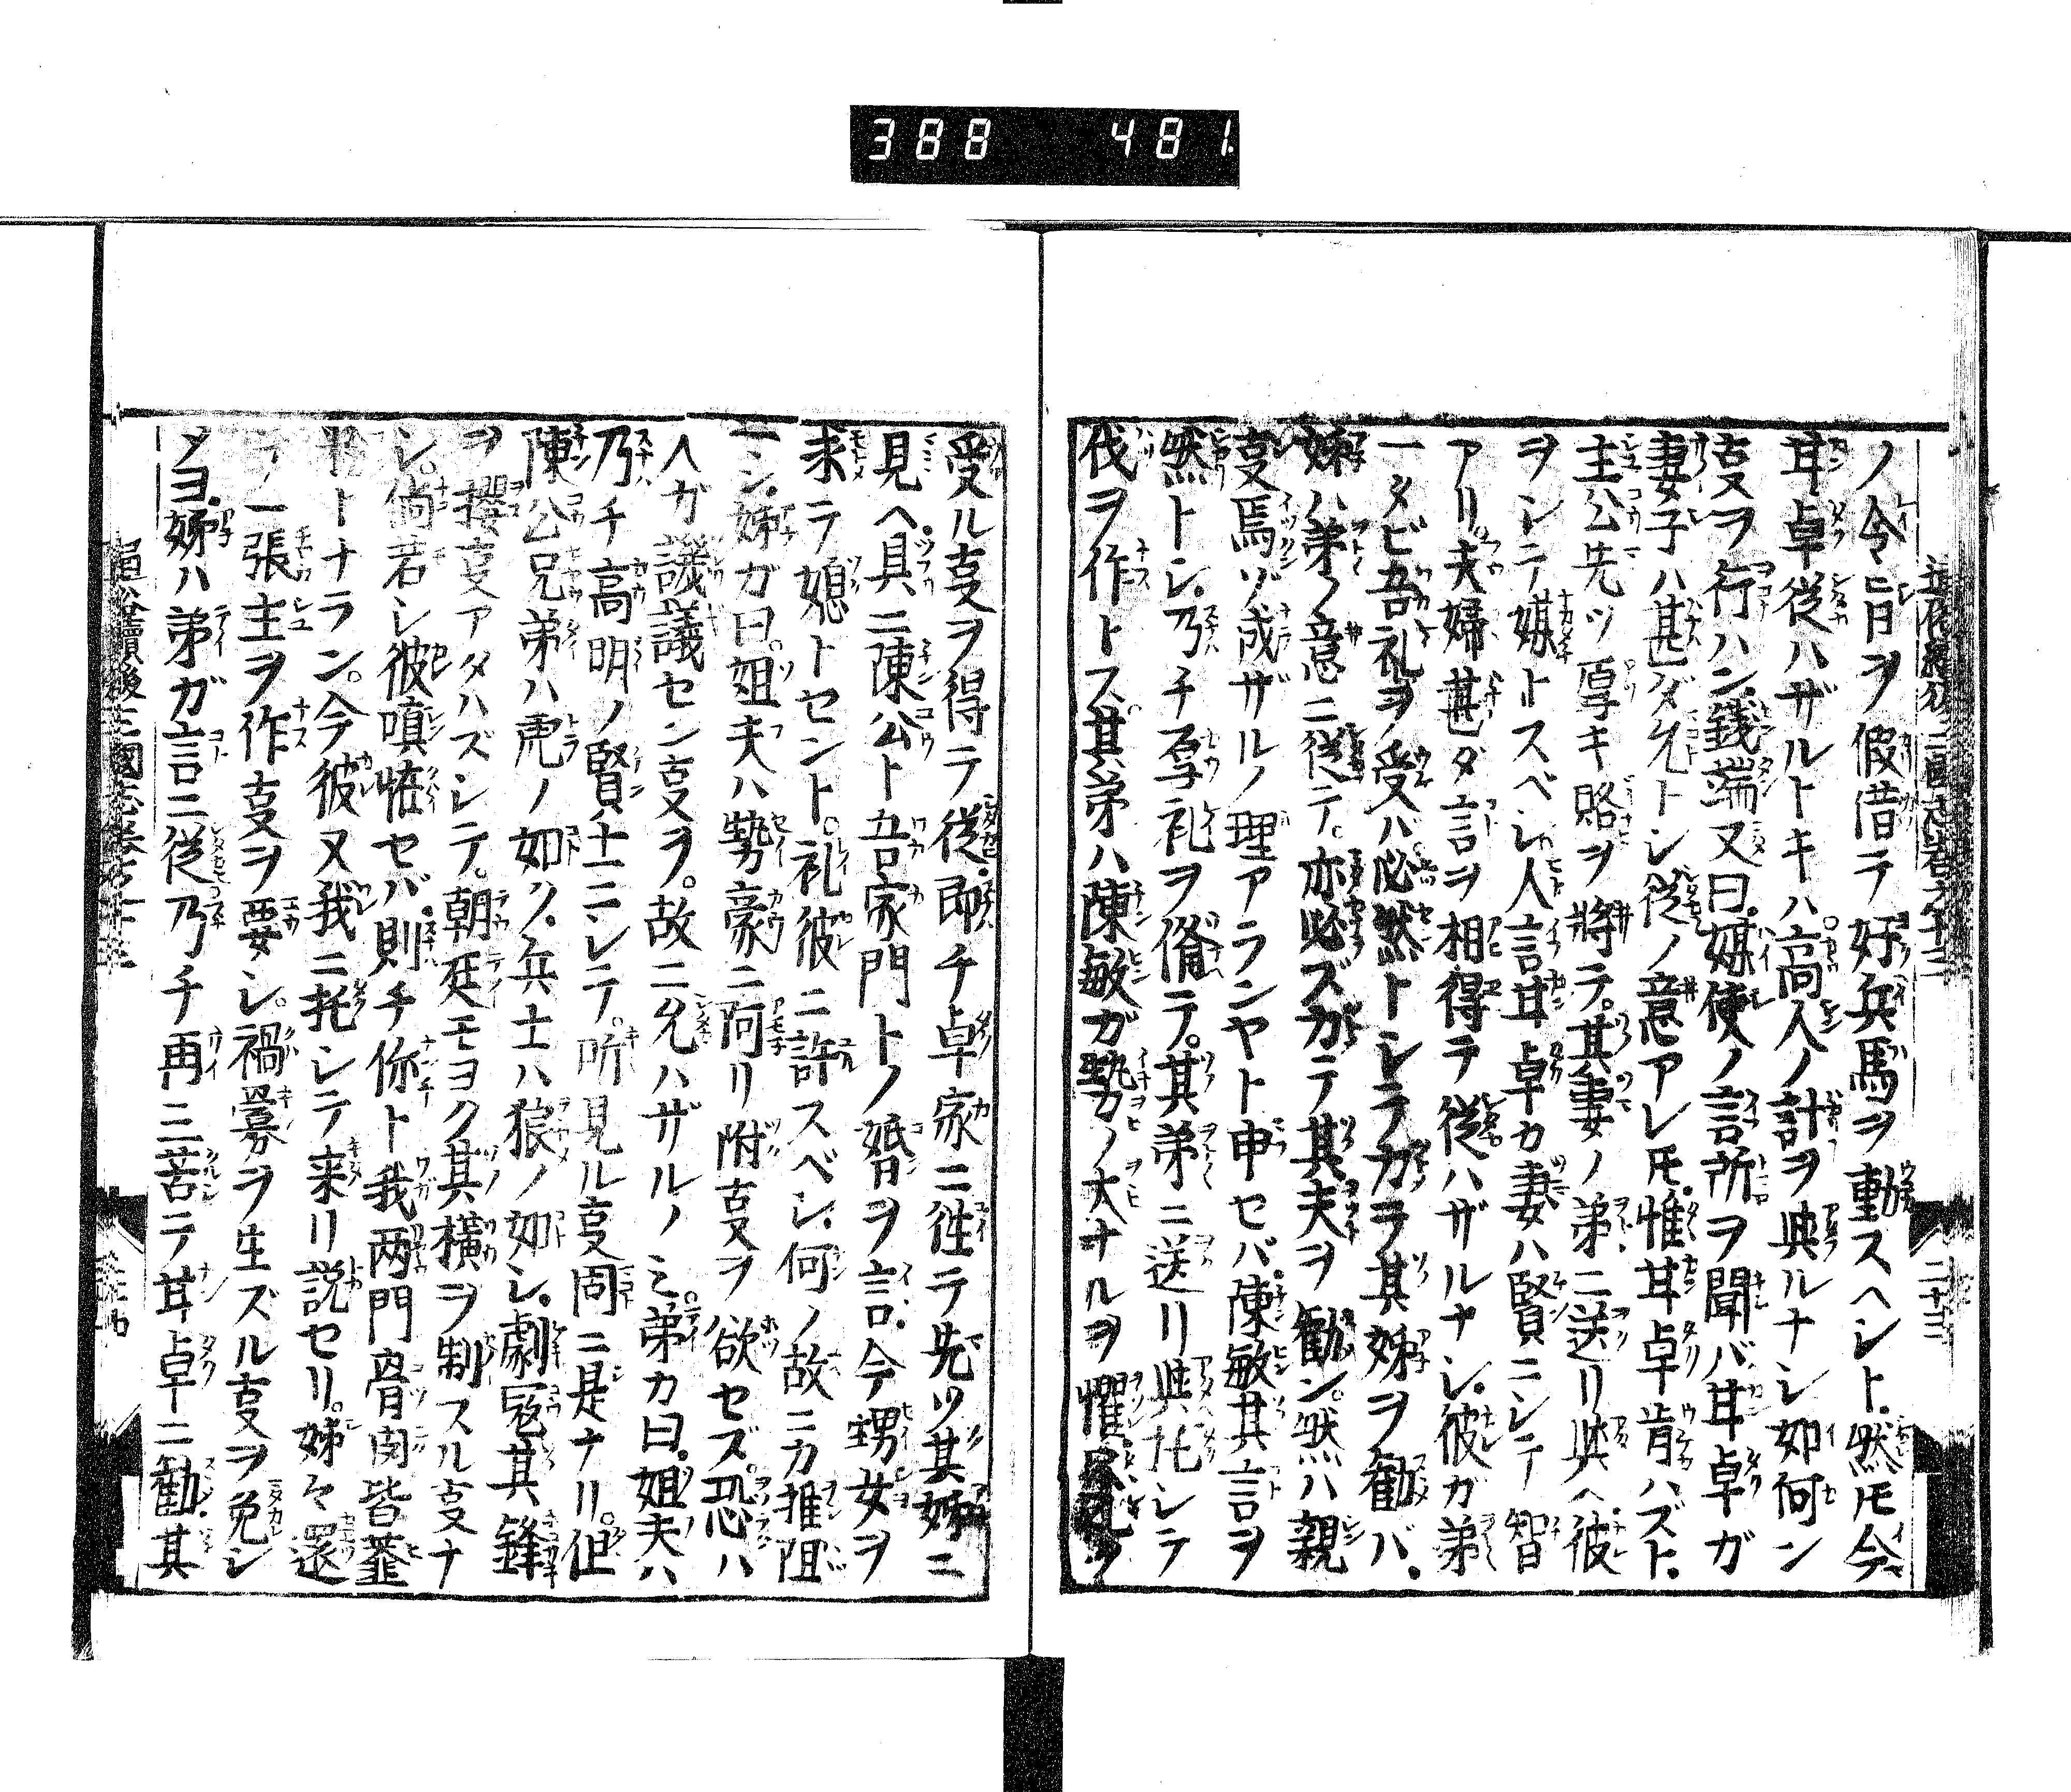 388 481.
ノ令旨ヲ假借テ好兵馬ヲ動スヘシト.然𪜈今
甘卓從ハザルトキハ高人ノ計ヲ與ルナシ如何ン
㕝ヲ行ハン.錢端又曰.媒使ノ言所ヲ聞バ甘卓ガ
妻子ハ甚ダ允トシ從ノ意アレ𪜈.惟甘卓肯ハズト.
主公先ツ厚キ賂ヲ將テ。其妻ノ弟ニ送リ與ヘ彼
ヲシテ媒トスベシ人言甘卓カ妻ハ賢ニシテ智
アリ.夫婦甚ダ言ヲ相得テ從ハザルナシ.彼カ弟
一タビ吾礼ヲ受ハ必然トシテ力ラ其姊ヲ勸バ.
姊ハ弟ノ意ニ從テ.亦必ズ力テ其夫ヲ勸ン.然ハ親
㕝焉ゾ成ザルノ理アランヤト申セバ.陳敏其言ヲ
然トシ.乃チ厚礼ヲ備テ。其弟ニ送リ與托シテ
伐ヲ作トス其弟ハ陳敏ガ勢ノ大ナルヲ懼
受ル㕝ヲ得テ從.即チ卓家ニ徃テ先ツ其姊ニ
見ヘ.具ニ陳公ト吾家門トノ婚ヲ言.今甥女ヲ
求テ媳トセント。礼彼ニ許スベシ.何ノ故ニカ推阻
ン.姊ガ曰.姐夫ハ勢豪ニ阿リ附㕝ヲ欲セズ.恐ハ
人ガ譏議セン㕝ヲ。故ニ允ハザルノミ.弟カ曰.姐夫ハ
乃チ高明ノ賢士ニシテ.所見ル㕝固ニ是ナリ.但
陳公兄弟ハ虎ノ如ク.兵士ハ狼ノ如シ.劇冦其鋒
ヲ攖㕝アタハズシテ.朝廷モヨク其橫ヲ制スル㕝ナ
シ.倘若シ彼嗔恠セバ.則チ你ト我両門骨肉皆虀
トナラン.今彼又我ニ托シテ来リ説セリ.姊々還
一張主ヲ作㕝ヲ要シ.禍釁ヲ生ズル㕝ヲ免シ
メヨ.姊ハ弟ガ言ニ從乃チ再三苦ニテ甘卓ニ勸其